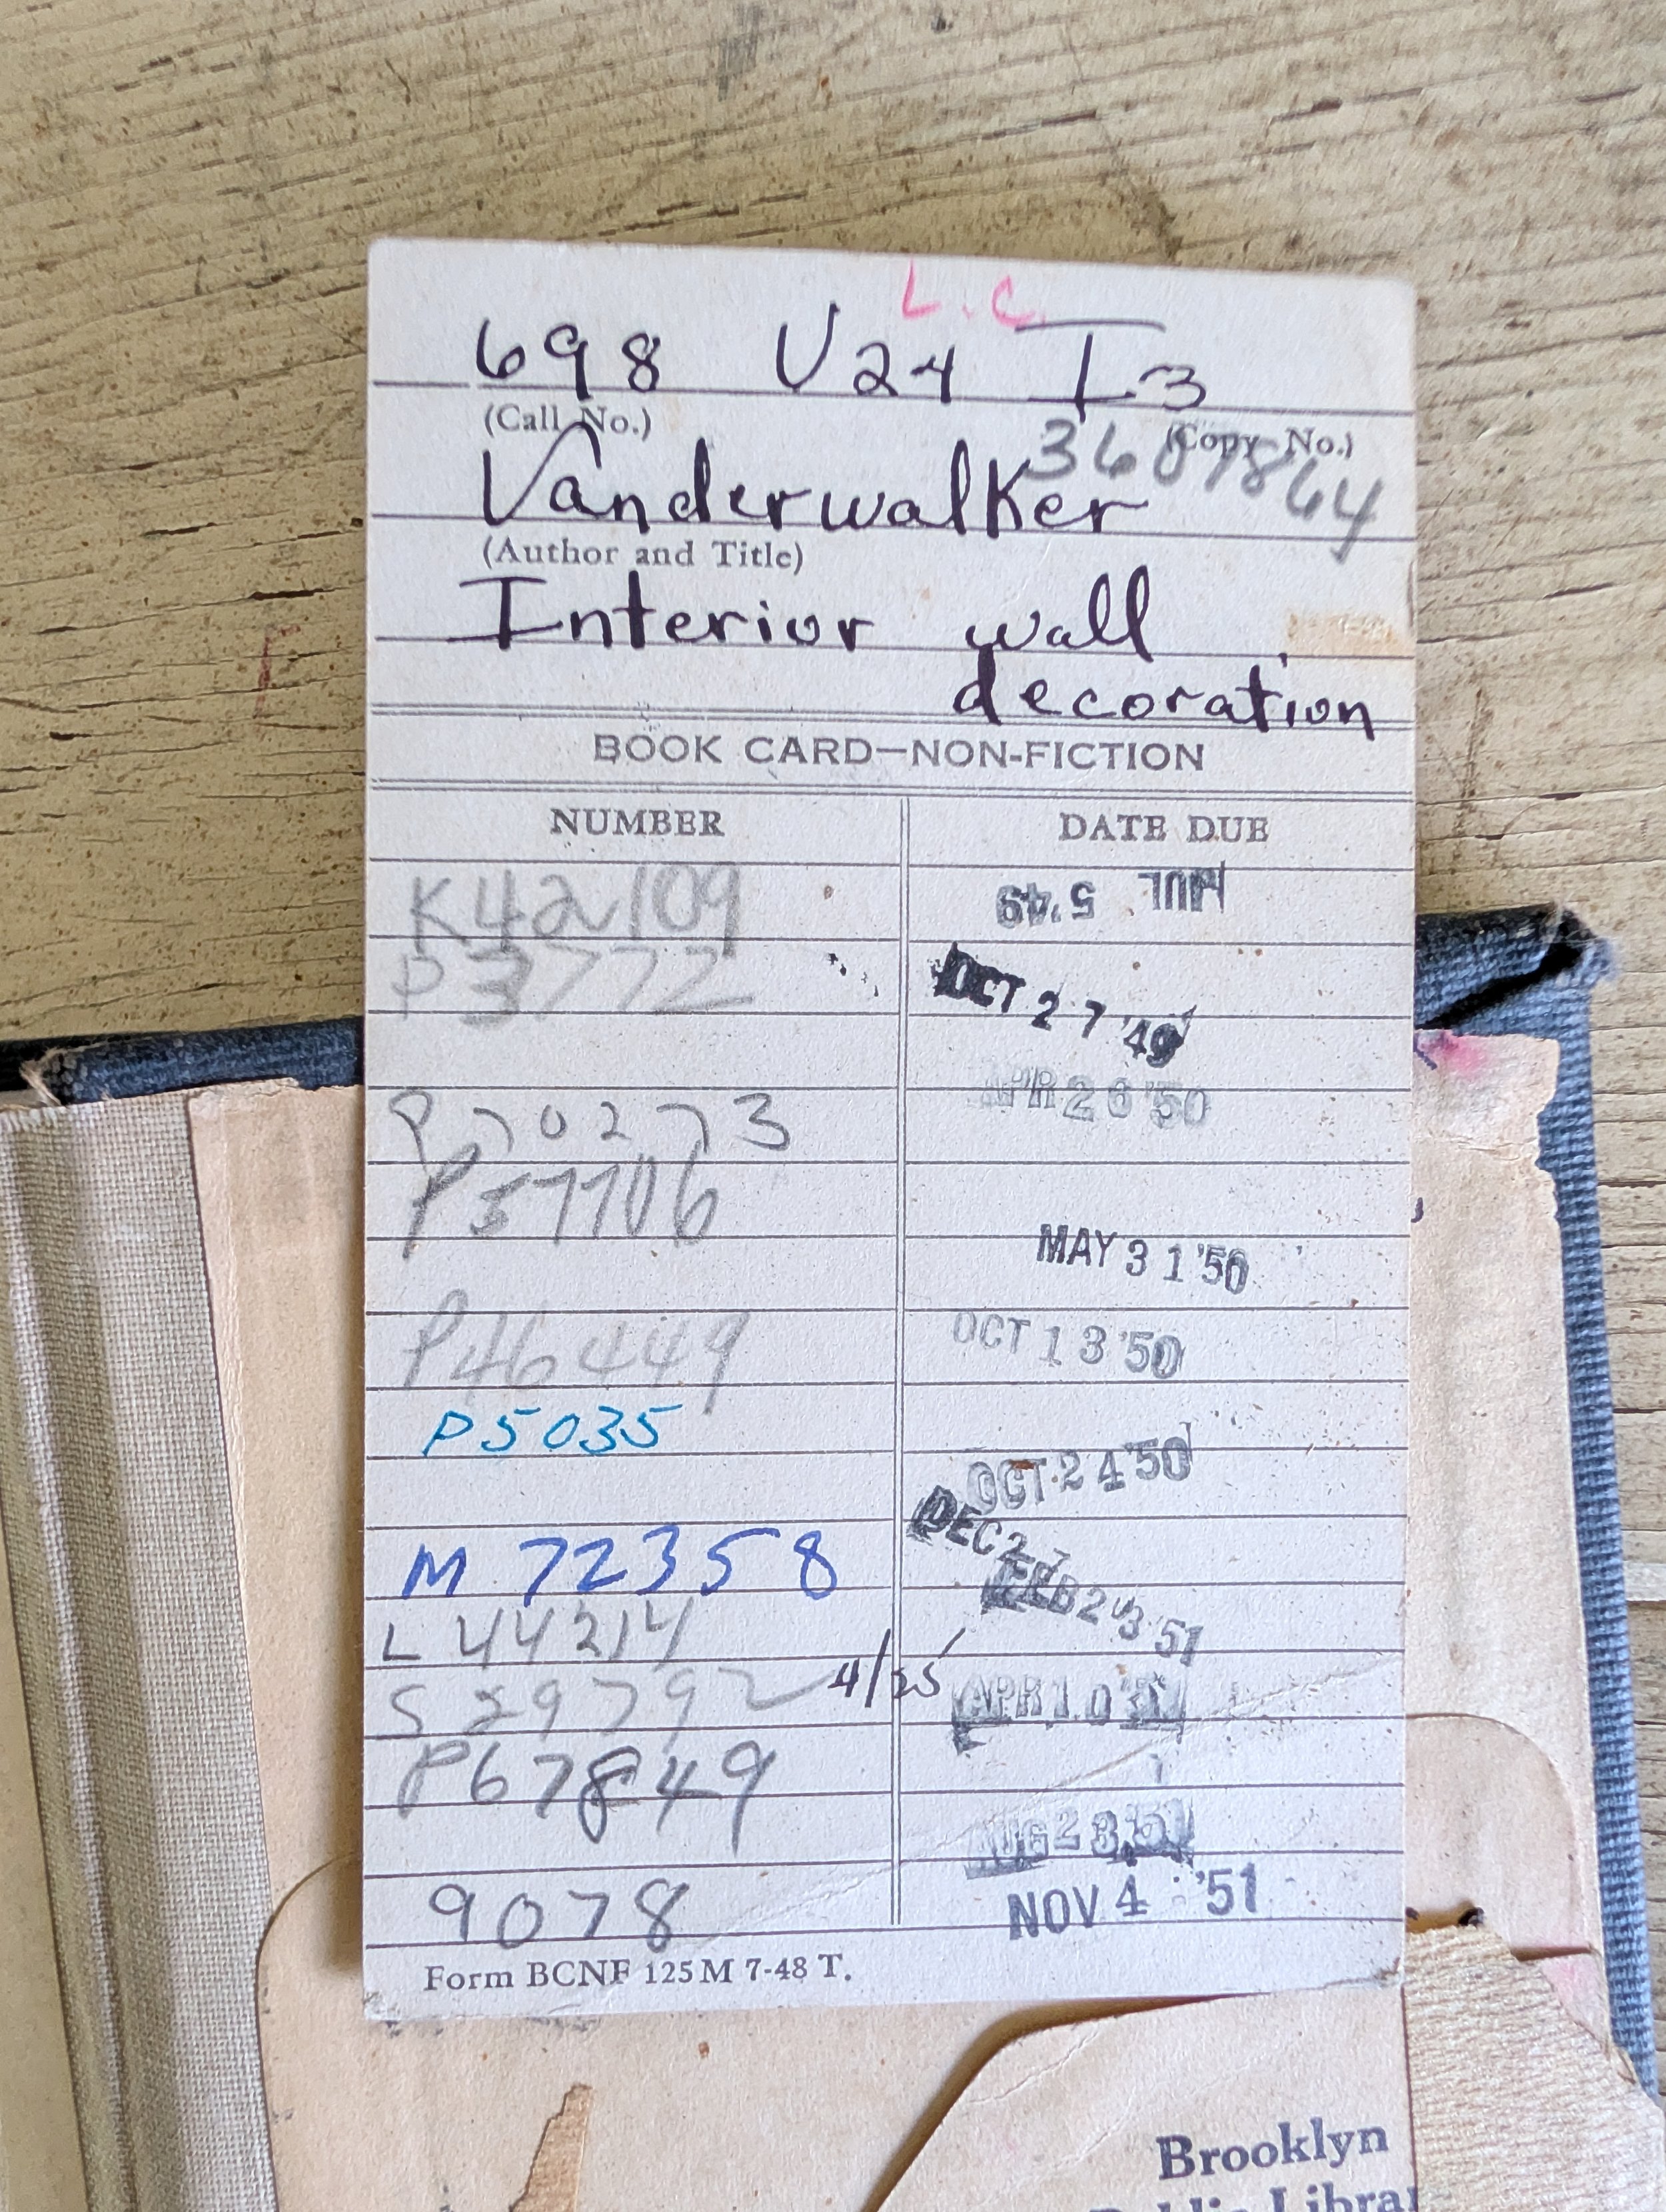 L.C.
698 V24 I3
(Call No.) (Copy No.)
Vanderwalker
(Author and Title)
Interior wall
decoration
BOOK CARD—NON-FICTION
NUMBER DATE DUE
K42109 JUL 5 '49
P3772 OCT 27 '49
P70273 APR 26 '50
P57706 MAY 31 '50
P46449 OCT 13 '50
P5035 OCT 24 '50
DEC 27
M 72358 FEB 23 '51
L 44214
S 29792 4/25 APR 10
P67849 AUG 23 '51
9078 NOV 4 '51
Form BCNF 125M 7-48 T.
Brooklyn